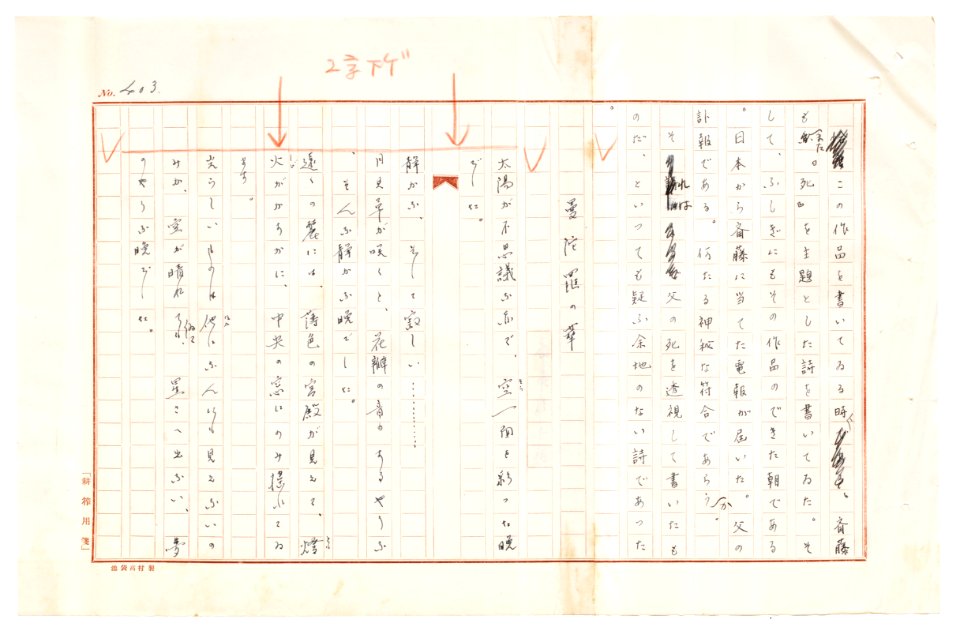 No. 403.
2字下ゲ
この作品を書いてゐる時、斎藤
も『死』を主題とした詩を書いてゐた。そ
して、ふしぎにもその作品のできた朝である
。日本から斎藤に当てた電報が届いた。父の
訃報である。何たる神秘な符合であらうか。
それは父の死を透視して書いたも
のだ、といつても疑ふ余地のない詩であつた
。
曼陀羅の華
太陽が不思議な赤で、空一面を彩つた晩
でした。
静かな、そして寂しい…………
月見草が咲くと、花瓣の音のあるやうな
、そんな静かな晩でした。
遠くの麓には、薄色の宮殿が見えて、燈
火がかすかに、中央の窓にのみ揺れてゐ
ます。
尖らしいものは何んにも見えないの
みか、空が晴れてゐ、星さへ出ない、夢
のやうな晩でした。
「耕筰用箋」
池袋高村製